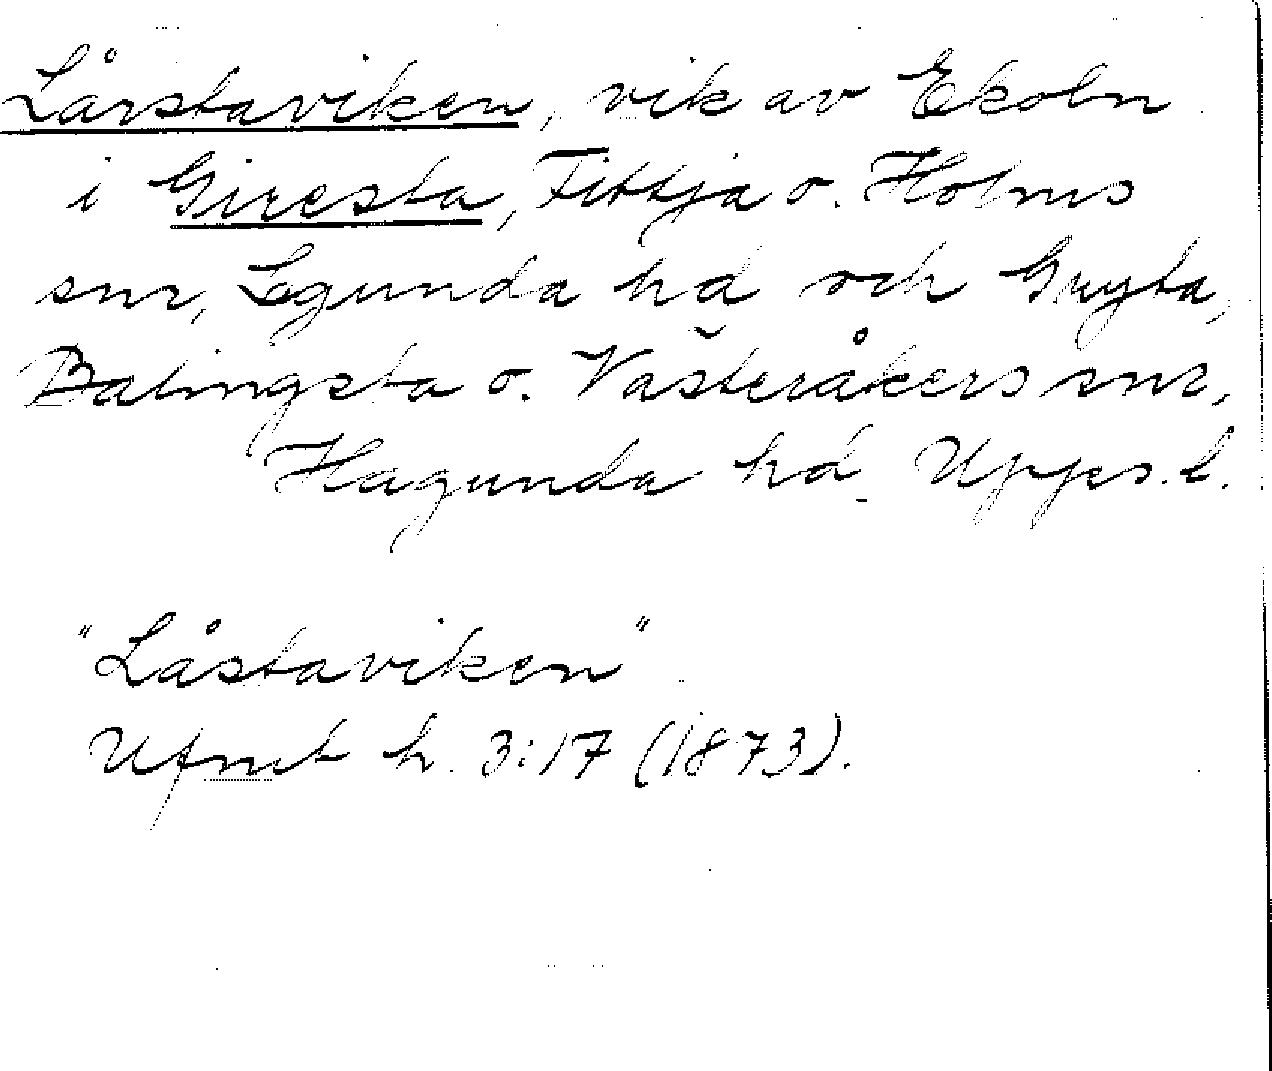 Lårstaviken, vik av Ekoln
i Giresta, Fittja o. Holms
snr, Lgunda hd och Gryta,
Balingsta o. Västeråkers snr,
Hagunda hd. Upps. l.
"Låstaviken"
Ufmt h. 3:17 (1873).